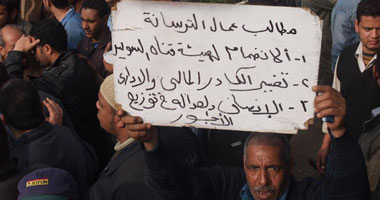 مطالب عمال الترسانة
١- الانضمام لهيئة قناه السويس
٢- تغيير الكادر المالى والادارى
٣- والعداله فى توزيع
الأجور